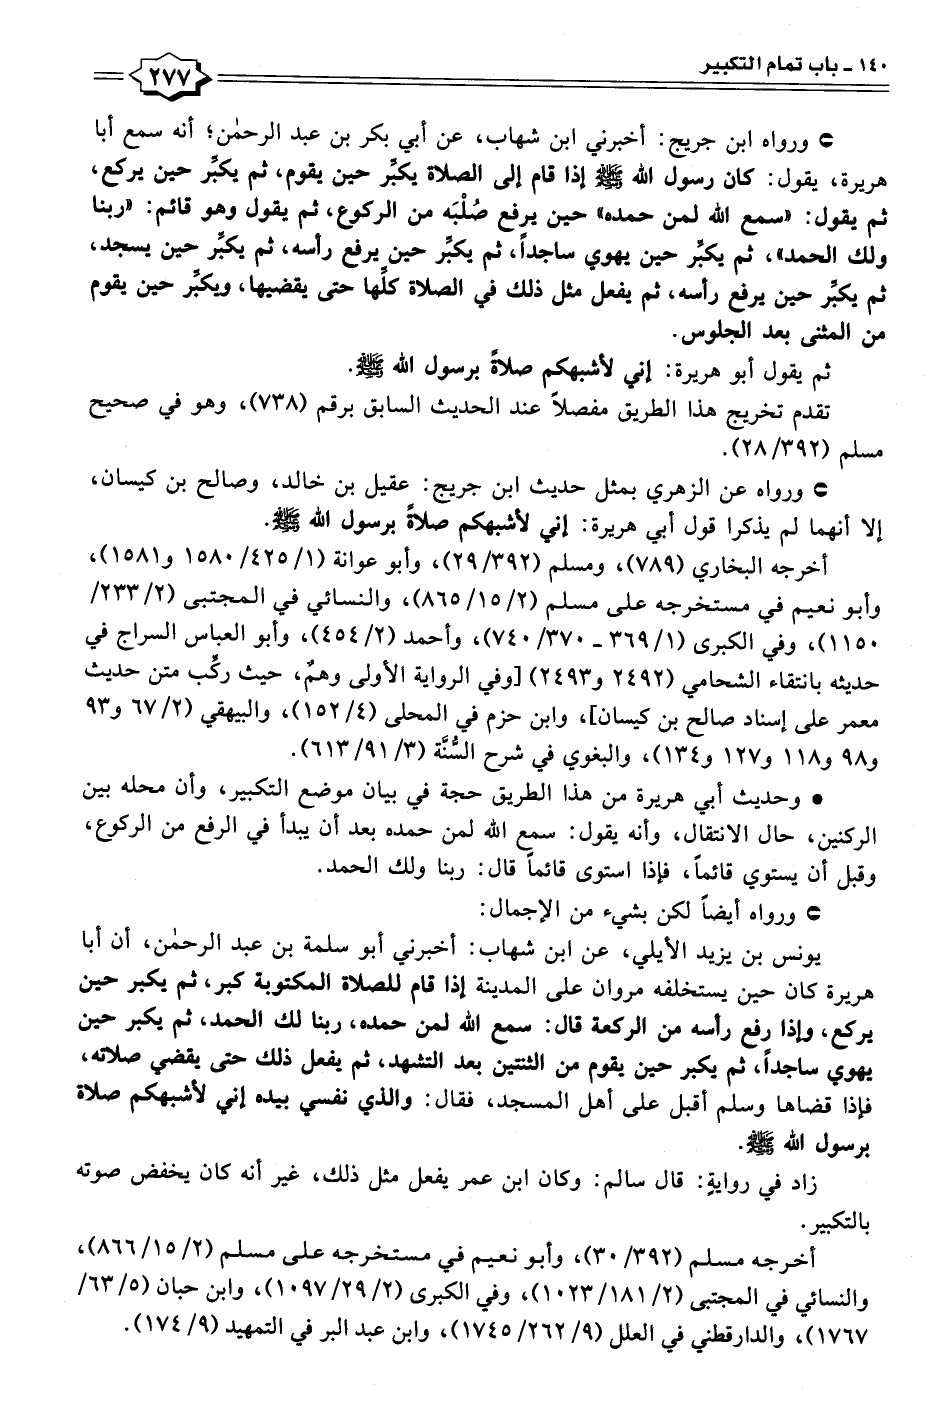 ١٤٠ - باب تمام التكبير
٢٧٧
ورواه ابن جريج: أخبرني ابن شهاب، عن أبي بكر بن عبد الرحمٰن؛ أنه سمع أبا
هريرة، يقول: كان رسول الله ﷺ إذا قام إلى الصلاة يكبِّر حين يقوم، ثم يكبِّر حين يركع،
ثم يقول: «سمع الله لمن حمده» حين يرفع صُلْبَه من الركوع، ثم يقول وهو قائم: «ربنا
ولك الحمد»، ثم يكبِّر حين يهوي ساجداً، ثم يكبِّر حين يرفع رأسه، ثم يكبِّر حين يسجد،
ثم يكبِّر حين يرفع رأسه، ثم يفعل مثل ذلك في الصلاة كلِّها حتى يقضيها، ويكبِّر حين يقوم
من المثنى بعد الجلوس.
ثم يقول أبو هريرة: إني لأشبهكم صلاةً برسول الله ﷺ.
تقدم تخريج هذا الطريق مفصلاً عند الحديث السابق برقم (٧٣٨)، وهو في صحيح
مسلم (٢٨/٣٩٢).
ورواه عن الزهري بمثل حديث ابن جريج: عقيل بن خالد، وصالح بن كيسان،
إلا أنهما لم يذكرا قول أبي هريرة: إني لأشبهكم صلاةً برسول الله ﷺ.
أخرجه البخاري (٧٨٩)، ومسلم (٢٩/٣٩٢)، وأبو عوانة (١/ ٤٢٥/ ١٥٨٠ و١٥٨١)،
وأبو نعيم في مستخرجه على مسلم (٢/ ١٥/ ٨٦٥)، والنسائي في المجتبى (٢/ ٢٣٣/
١١٥٠)، وفي الكبرى (١/ ٣٦٩ - ٣٧٠/ ٧٤٠)، وأحمد (٢/ ٤٥٤)، وأبو العباس السراج في
حديثه بانتقاء الشحامي (٢٤٩٢ و٢٤٩٣) [وفي الرواية الأولى وهمٌ، حيث ركَّب متن حديث
معمر على إسناد صالح بن كيسان]، وابن حزم في المحلى (٤/ ١٥٢)، والبيهقي (٢/ ٦٧ و٩٣
و٩٨ و١١٨ و١٢٧ و١٣٤)، والبغوي في شرح السُّنَّة (٣/ ٩١/ ٦١٣).
• وحديث أبي هريرة من هذا الطريق حجة في بيان موضع التكبير، وأن محله بين
الركنين، حال الانتقال، وأنه يقول: سمع الله لمن حمده بعد أن يبدأ في الرفع من الركوع،
وقبل أن يستوي قائماً، فإذا استوى قائماً قال: ربنا ولك الحمد.
ورواه أيضاً لكن بشيء من الإجمال:
يونس بن يزيد الأيلي، عن ابن شهاب: أخبرني أبو سلمة بن عبد الرحمٰن، أن أبا
هريرة كان حين يستخلفه مروان على المدينة إذا قام للصلاة المكتوبة كبر، ثم يكبر حين
يركع، وإذا رفع رأسه من الركعة قال: سمع الله لمن حمده، ربنا لك الحمد، ثم يكبر حين
يهوي ساجداً، ثم يكبر حين يقوم من الثنتين بعد التشهد، ثم يفعل ذلك حتى يقضي صلاته،
فإذا قضاها وسلم أقبل على أهل المسجد، فقال: والذي نفسي بيده إني لأشبهكم صلاة
برسول الله ﷺ.
زاد في روايةٍ: قال سالم: وكان ابن عمر يفعل مثل ذلك، غير أنه كان يخفض صوته
بالتكبير.
أخرجه مسلم (٣٠/٣٩٢)، وأبو نعيم في مستخرجه على مسلم (٢/ ١٥/ ٨٦٦)،
والنسائي في المجتبى (٢/ ١٨١/ ١٠٢٣)، وفي الكبرى (٢/ ٢٩/ ١٠٩٧)، وابن حبان (٥/ ٦٣/
١٧٦٧)، والدارقطني في العلل (٩/ ٢٦٢/ ١٧٤٥)، وابن عبد البر في التمهيد (٩/ ١٧٤).